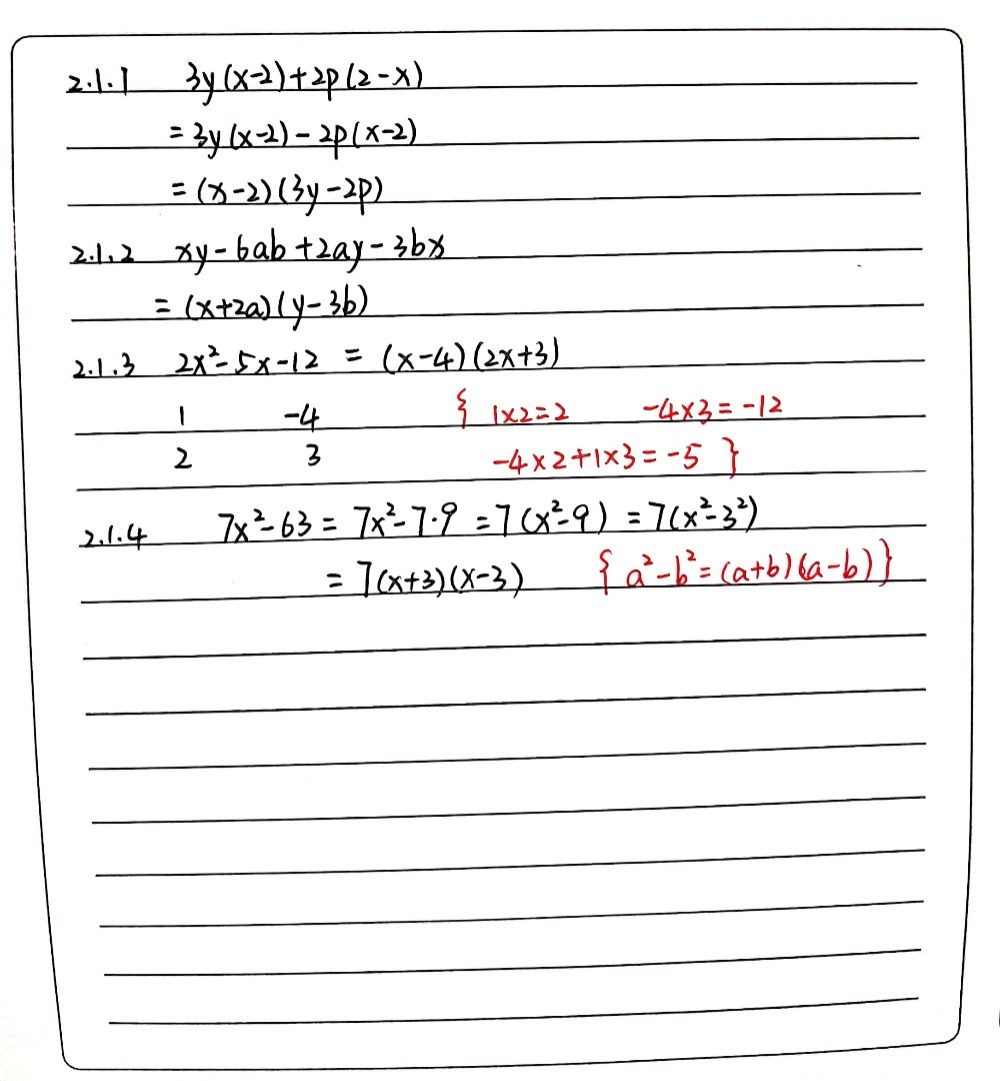 2.1.1 3y(x-2)+2p(2-x)
=3y(x-2)-2p(x-2)
=(x-2)(3y-2p)
2.1.2 xy-6ab+2ay-3bx
=(x+2a)(y-3b)
2.1.3 2x²-5x-12 = (x-4)(2x+3)
1 -4 { 1×2=2 -4×3=-12
2 3 -4×2+1×3=-5 }
2.1.4 7x²-63 = 7x²-7·9 =7(x²-9) =7(x²-3²)
=7(x+3)(x-3) { a²-b²=(a+b)(a-b)}